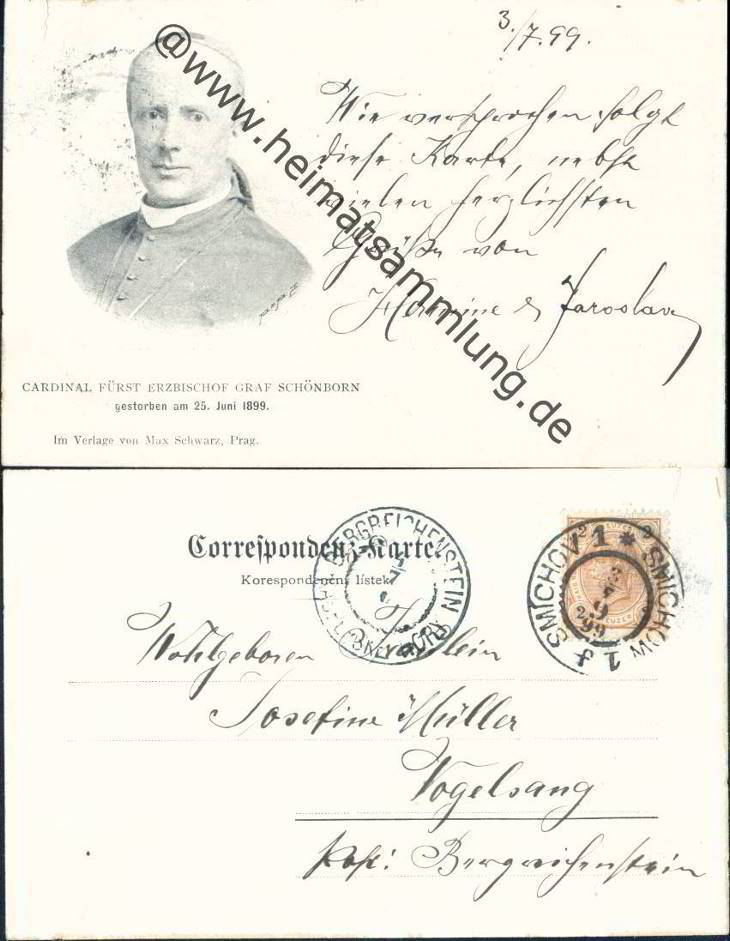 3./7.99.
Wie versprochen folgt
diese Karte, nebst
vielen herzlichsten
Grüße von
Hermine & Jaroslav
@www.heimatsammlung.de
CARDINAL FÜRST ERZBISCHOF GRAF SCHÖNBORN
gestorben am 25. Juni 1899.
Im Verlage von Max Schwarz, Prag.
Correspondenz-Karte.
Korespondenční lístek.
BERGREICHENSTEIN
KAŠPERSKÉ HORY
SMÍCHOV 1 * SMICHOW 1
Wohlgeboren Fräulein
Josefine Müller
Vogelsang
Post: Bergreichenstein